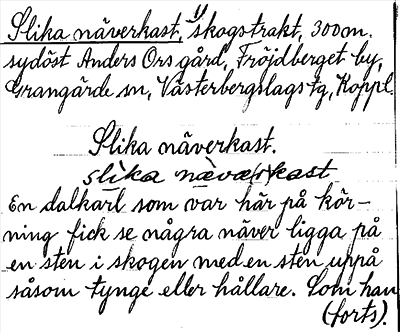 Slika näverkast, y skogstrakt, 300 m.
sydöst Anders Ors gård, Fröjdberget by,
Grangärde sn, Västerbergslags tg, Koppl.
Slika näverkast.
slika nävə(r)kast
En dalkarl som var här på kör-
ning fick se några näver ligga på
en sten i skogen med en sten uppå
såsom tynge eller hållare. Som han
(forts).